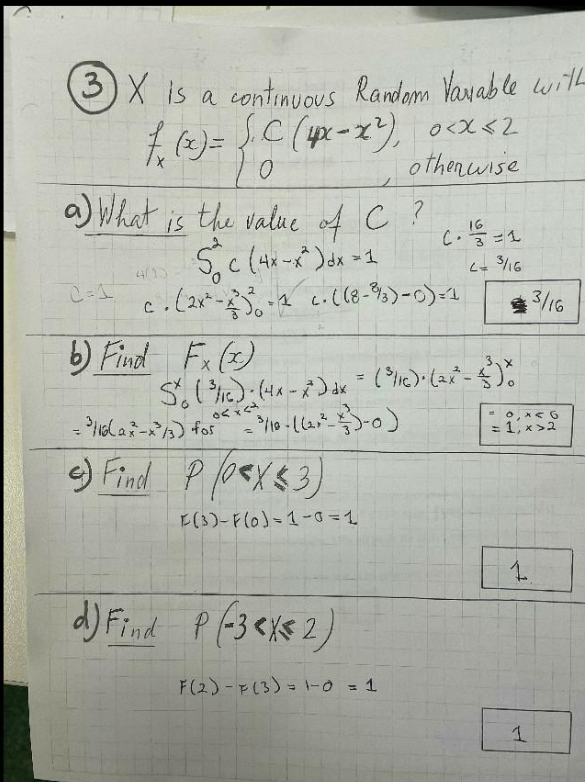 ③ X is a continuous Random Variable with
f_x(x) = { C (4x-x²), 0<x≤2
0 , otherwise
a) What is the value of C ?
∫₀² c (4x-x²) dx = 1
c · 16/3 = 1
c = 3/16
C=1
c · (2x² - x³/3)₀² = 1 c · ((8-8/3)-0) = 1
3/16
b) Find F_x(x)
∫₀ˣ (3/16)·(4x-x²) dx = (3/16)·(2x² - x³/3)₀ˣ
= 3/16(2x²-x³/3) for 0<x<2 = 3/16·((2x²-x³/3)-0)
= 0, x<0
= 1, x>2
c) Find P(0<X≤3)
F(3)-F(0) = 1-0 = 1
1
d) Find P(-3<X≤2)
F(2)-F(3) = 1-0 = 1
1